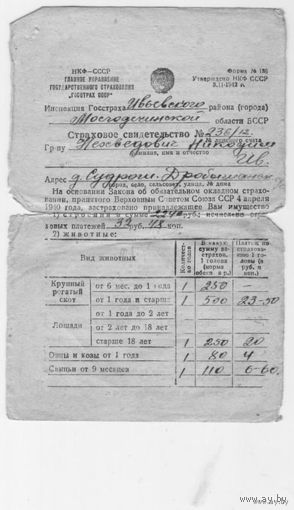 НКФ—СССР
ГЛАВНОЕ УПРАВЛЕНИЕ
ГОСУДАРСТВЕННОГО СТРАХОВАНИЯ
„ГОССТРАХ СССР“
Форма № 136
Утверждено НКФ СССР
Инспекция Госстраха Ивьевского района (города)
области БССР
Страховое свидетельство № 236/12
Гр-ну Неосведович
фамилия, имя и отчество
Ив.
Адрес д.
На основании Закона об обязательном окладном страхо-
вании, принятого Верховным Советом Союза ССР 4 апреля
1940 года, застраховано принадлежащее Вам имущество
руб.; исчислено
ховых платежей 52 руб. коп.
2) животные:
Вид животных
Количест-
во голов
В какую
сумму за-
страхов.
1 голова
(норма
обесп. в р.)
Платеж по
страхова-
нию 1 го-
ловы (в
руб. и
коп.)
Крупный рогатый скот от 6 мес. до 1 года 1 250 —
от 1 года и старше 1 500 23-50
Лошади от 1 года до 2 лет
от 2 лет до 18 лет
старше 18 лет 1 250 20
Овцы и козы от 1 года 1 80 4
Свиньи от 9 месяцев 1 110 6-60
www.ay.by